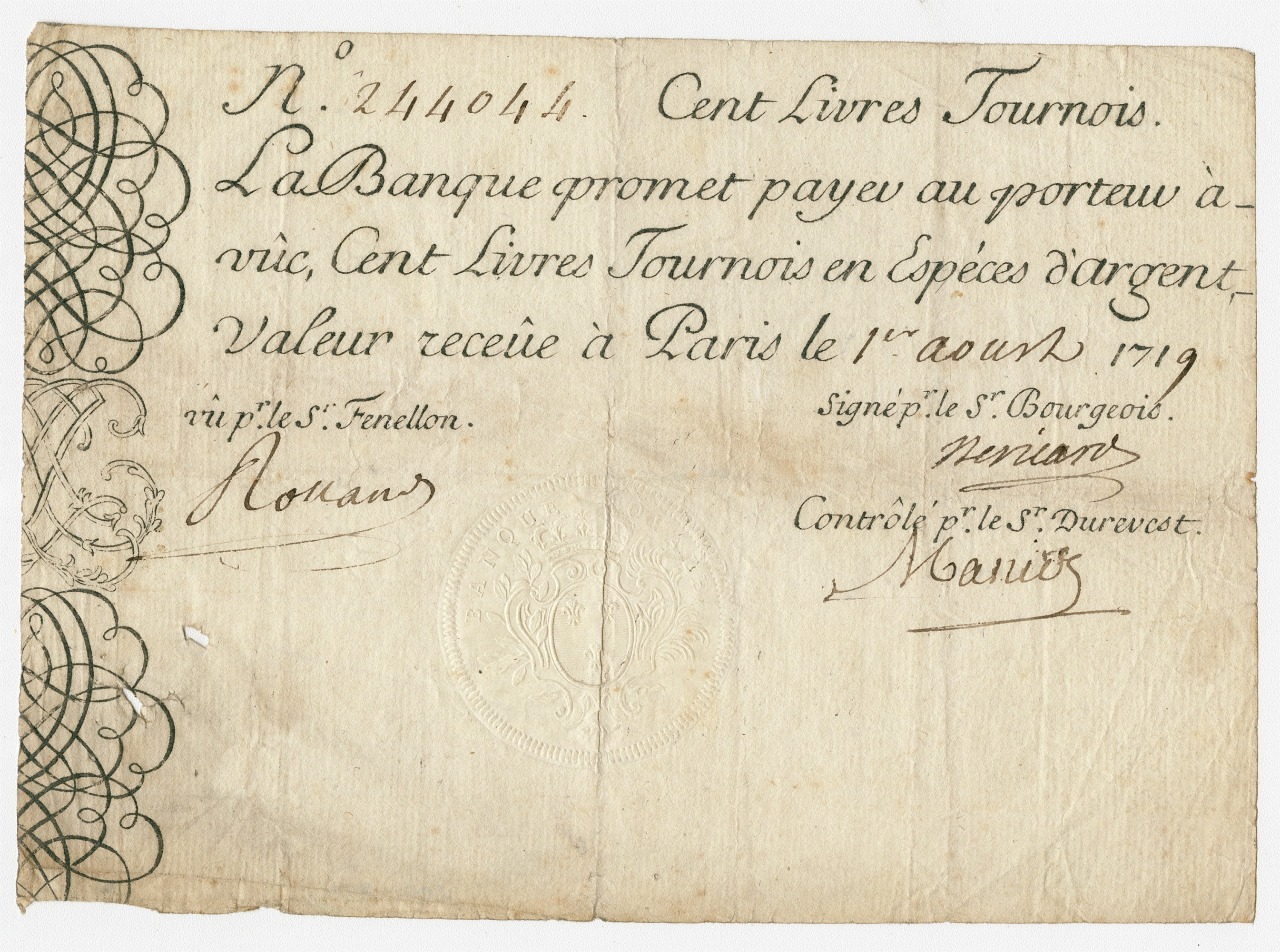 N.º 244044. Cent Livres Tournois.
La Banque promet payer au porteur à-
vûe, Cent Livres Tournois en Espéces d'argent,-
Valeur receûe à Paris le 1er aoust 1719
vû pr. le Sr. Fenellon. Signé pr. le Sr. Bourgeois.
Contrôlé pr. le Sr. Durevest.
BANQUE